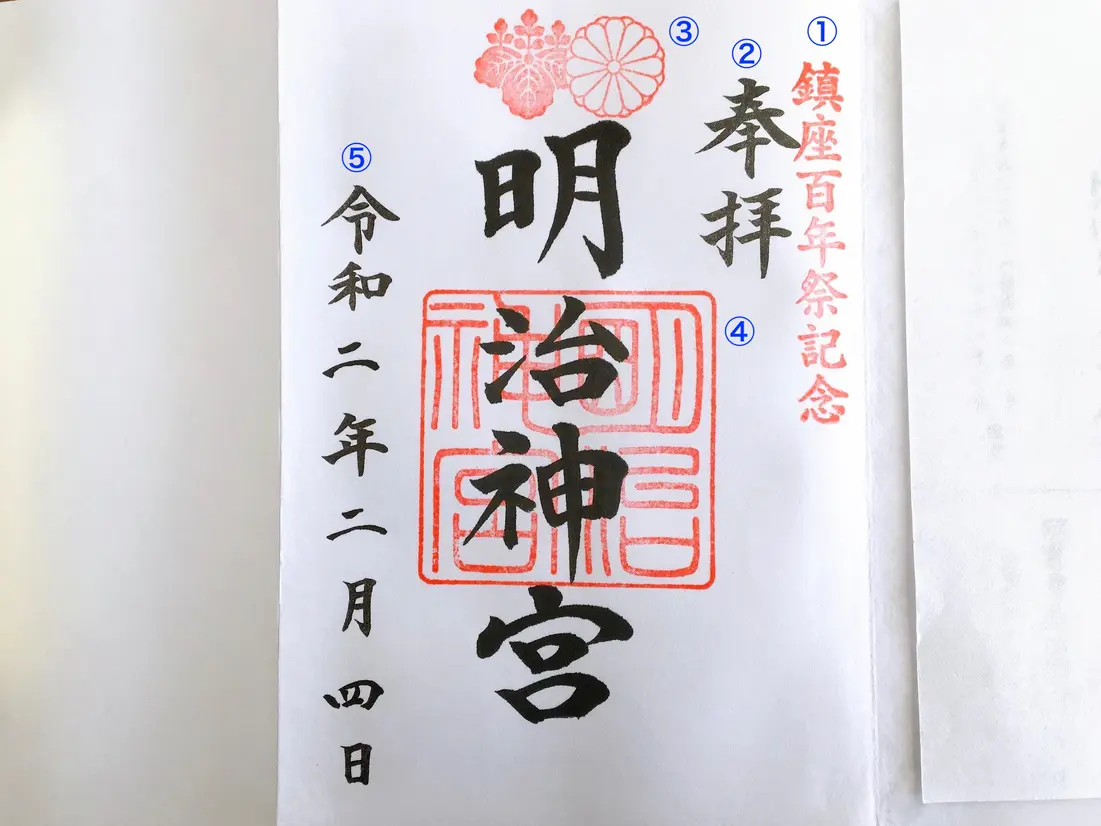 ①
鎮座百年祭記念
②
奉拝
③
明治神宮
④
明治神宮
⑤
令和二年二月四日